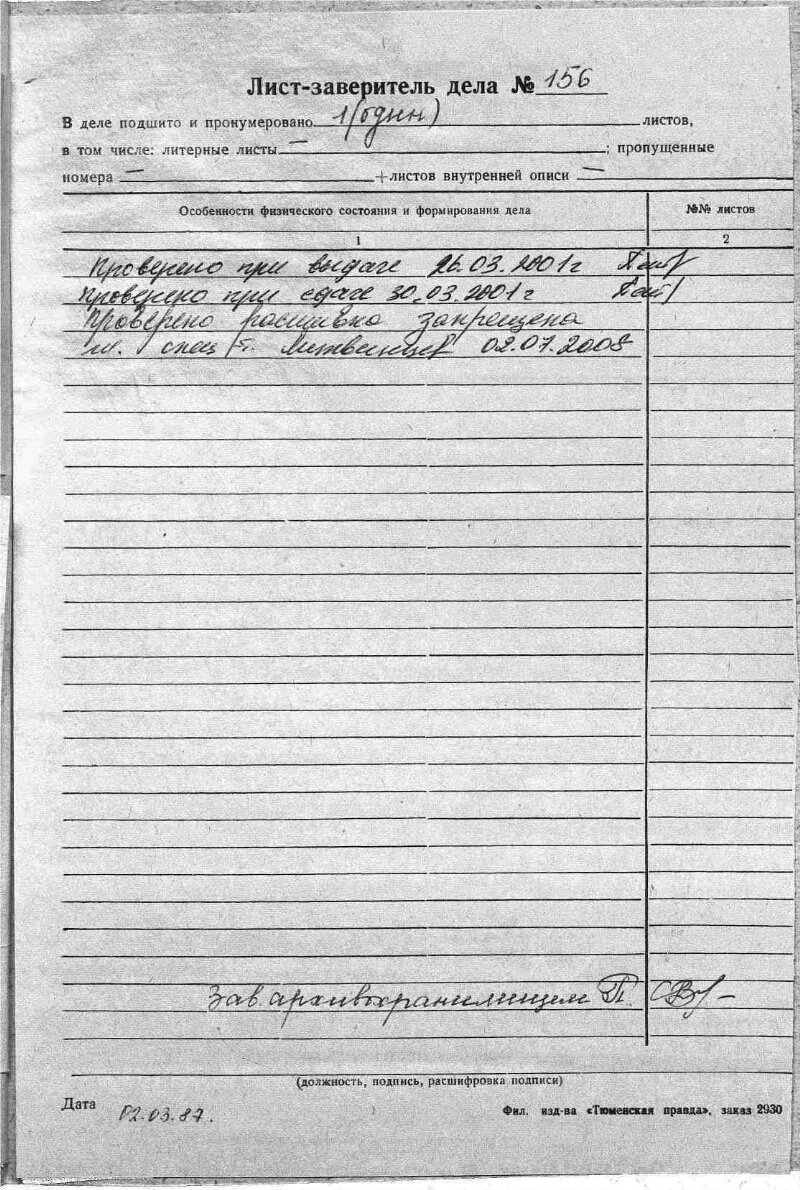 Лист-заверитель дела № 156
В деле подшито и пронумеровано 1 (один) листов,
в том числе: литерные листы — ; пропущенные
номера — +листов внутренней описи —
Особенности физического состояния и формирования дела №№ листов
1 2
Проверено при выдаче 26.03.2001г
Проверено при сдаче 30.03.2001г
Проверено расшивка запрещена
спец 02.07.2008
Зав. архивохранилищем
(должность, подпись, расшифровка подписи)
Дата 02.03.87.
Фил. изд-ва «Тюменская правда», заказ 2930